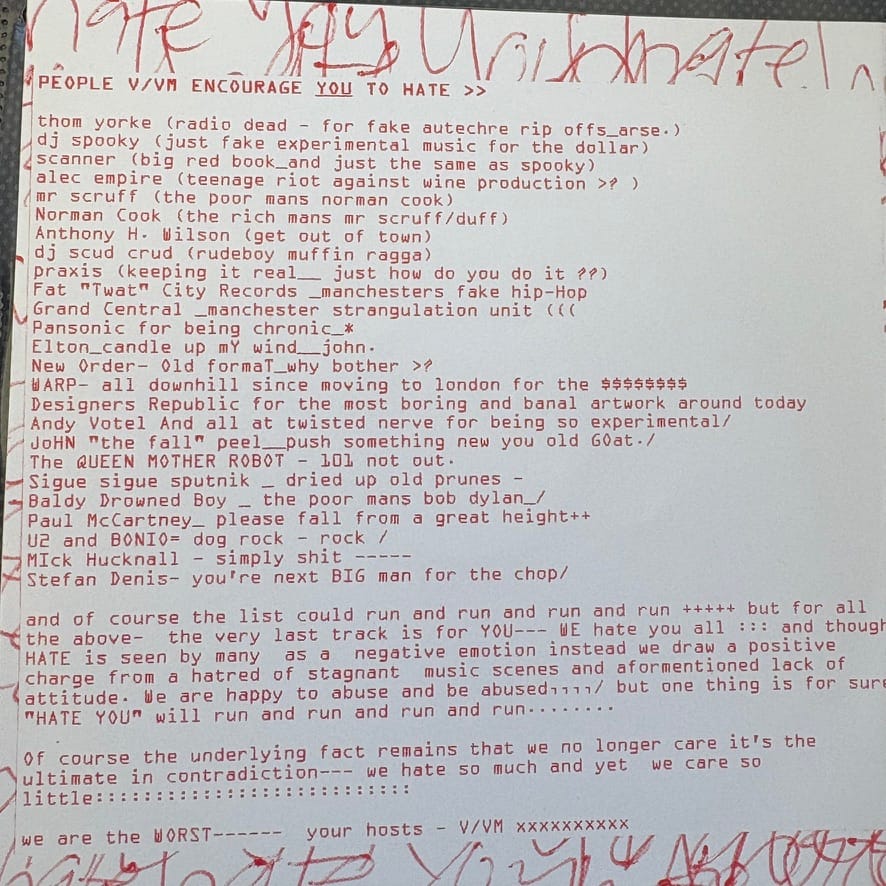 hate you Unishhate!
PEOPLE V/VM ENCOURAGE YOU TO HATE >>
thom yorke (radio dead - for fake autechre rip offs_arse.)
dj spooky (just fake experimental music for the dollar)
scanner (big red book_and just the same as spooky)
alec empire (teenage riot against wine production >? )
mr scruff (the poor mans norman cook)
Norman Cook (the rich mans mr scruff/duff)
Anthony H. Wilson (get out of town)
dj scud crud (rudeboy muffin ragga)
praxis (keeping it real__ just how do you do it ??)
Fat "Twat" City Records _manchesters fake hip-Hop
Grand Central _manchester strangulation unit (((
Pansonic for being chronic_*
Elton_candle up mY wind__john.
New Order- Old formaT_why bother >?
WARP- all downhill since moving to london for the $$$$$$$$
Designers Republic for the most boring and banal artwork around today
Andy Votel And all at twisted nerve for being so experimental/
JoHN "the fall" peel__push something new you old GOat./
The QUEEN MOTHER ROBOT - 101 not out.
Sigue sigue sputnik _ dried up old prunes -
Baldy Drowned Boy _ the poor mans bob dylan_/
Paul McCartney_ please fall from a great height++
U2 and BONIO= dog rock - rock /
MIck Hucknall - simply shit -----
Stefan Denis- you're next BIG man for the chop/
and of course the list could run and run and run and run +++++ but for all
the above-  the very last track is for YOU--- WE hate you all ::: and though
HATE is seen by many  as a  negative emotion instead we draw a positive
charge from a hatred of stagnant  music scenes and aformentioned lack of
attitude. We are happy to abuse and be abused,,,,/ but one thing is for sure
"HATE YOU" will run and run and run and run........
Of course the underlying fact remains that we no longer care it's the
ultimate in contradiction--- we hate so much and yet  we care so
little::::::::::::::::::::::::::::
we are the WORST------  your hosts - V/VM xxxxxxxxxx